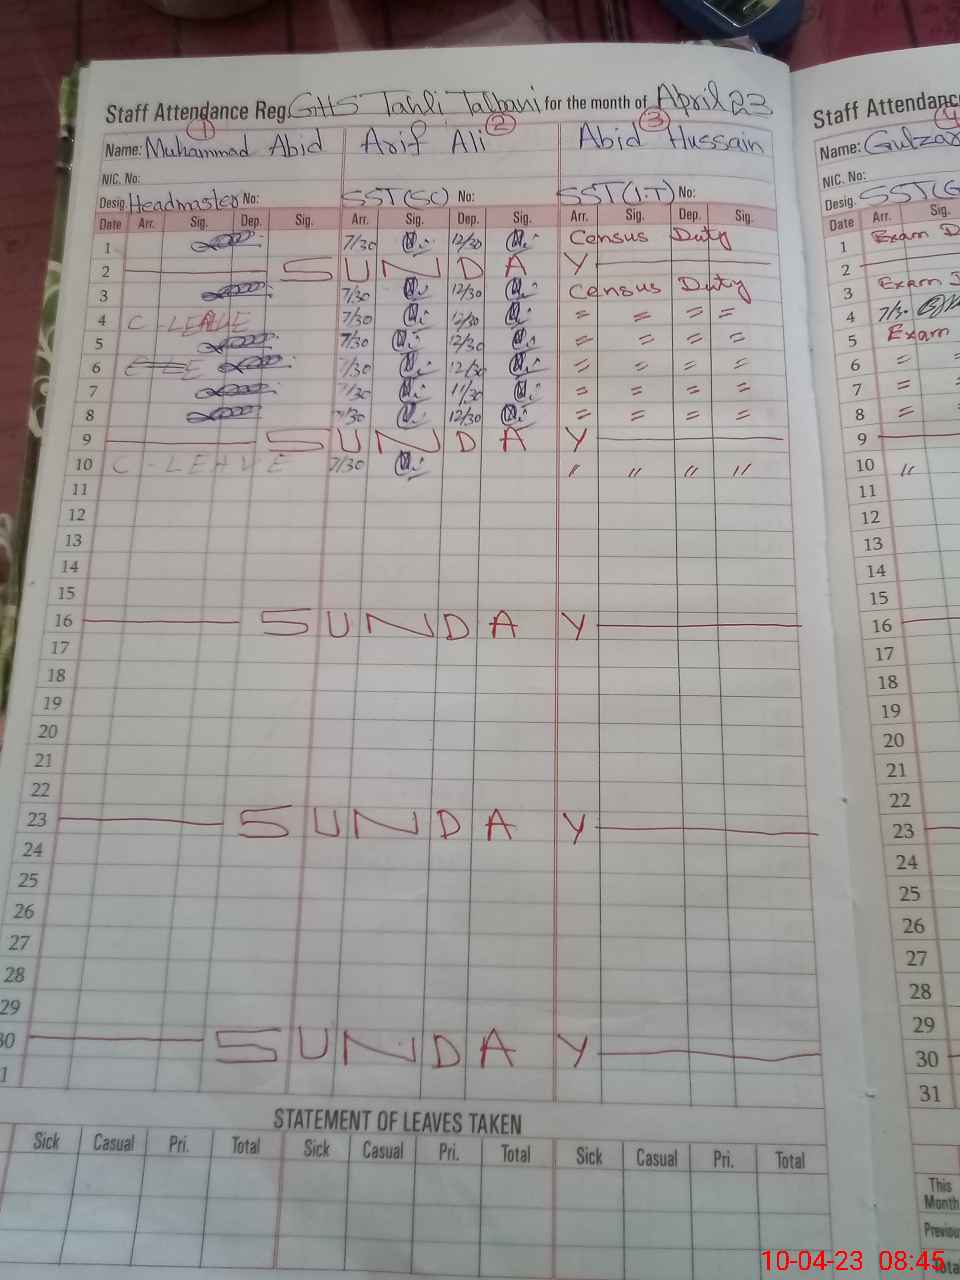 Staff Attendance Reg. GHS Tahli Talbani for the month of April 23
1 2 3
Name: Muhammad Abid Arif Ali Abid Hussain
NIC. No:
Desig. Headmaster No: SST(SC) No: SST(I.T) No:
Date Arr. Sig. Dep. Sig. Arr. Sig. Dep. Sig. Arr. Sig. Dep. Sig.
1 7/30 12/30 Census Duty
2 SUNDAY
3 7/30 12/30 Census Duty
4 C-LEAVE 7/30 12/30 = = = =
5 7/30 12/30 = = = =
6 7/30 12/30 = = = =
7 7/30 11/30 = = = =
8 7/30 12/30 = = = =
9 SUNDAY
10 C-LEAVE 7/30 " " " "
11
12
13
14
15
16 SUNDAY
17
18
19
20
21
22
23 SUNDAY
24
25
26
27
28
29
30 SUNDAY
1
STATEMENT OF LEAVES TAKEN
Sick Casual Pri. Total Sick Casual Pri. Total Sick Casual Pri. Total
Staff Attendance
4
Name: Gulzar
NIC. No:
Desig. SST(G
Date Arr. Sig.
1 Exam D
2
3 Exam D
4 7/30
5 Exam
6 = =
7 = =
8 = =
9
10 "
11
12
13
14
15
16
17
18
19
20
21
22
23
24
25
26
27
28
29
30
31
This
Month
Previou
Tota
10-04-23 08:45